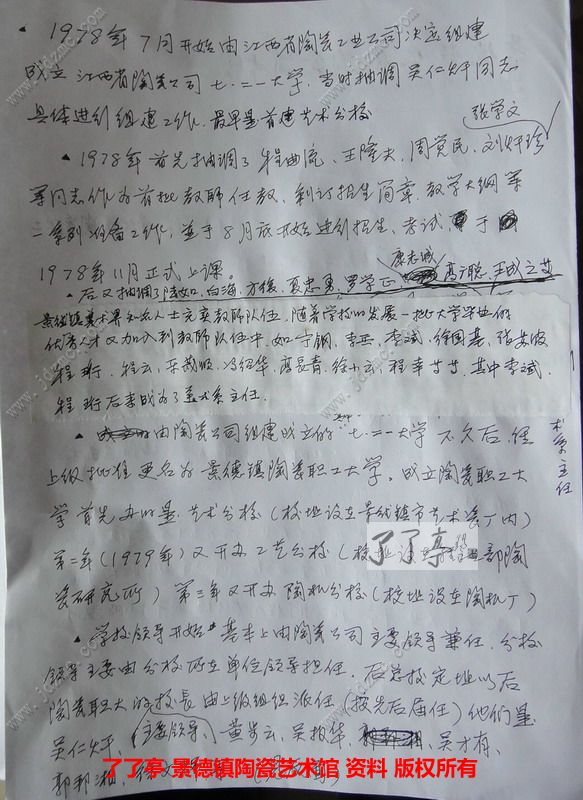 1978年7月开始由江西省陶瓷工业公司决定组建
成立江西省陶瓷公司七.二一大学,当时抽调吴仁灯同志
具体进行组建工作,最早是首建艺术分校
张学文
▲1978年首先抽调了程曲流、王隆夫、周党民、刘炽珍
等同志作为首批教师任教,制订招生简章,教学大纲等
一系列准备工作,并于8月底开始进行招生、考试,于
1978年11月正式上课。
康志诚
▲后又抽调了陆如,白海,方俊,夏忠勇,罗学正,高广聪,王成之等
景德镇美术界知名人士充实教师队伍,随着学校的发展一批大学毕业的
优秀人才又加入到教师队伍中,如 李斌,徐国基,张安
程珩,程云,冯绍华,高长青,徐小云,程幸等等,其中李斌,
程珩后来成为了美术系主任.
术系主任
▲由陶瓷公司组建成立的七.二一大学不久后,经
上级批准更名为景德镇陶瓷职工大学,成立陶瓷职工大
学首先办的是艺术分校(校址设在景德镇市艺术瓷厂内)
第二年(1979年)又开办工艺分校(校址设 部陶
瓷研究所)第三年又开办陶机分校(校址设在陶机厂)
▲学校领导开始基本上由陶瓷公司主要领导兼任,分校
领导主要由分校所在单位领导担任,后总校定址以后
陶瓷职大的校长由上级组织派任(按先后届任)他们是
吴仁灯,(主要领导)黄步云,吴招华,吴才有,
郭邦湘,
了了亭
了了亭·景德镇陶瓷艺术馆 资料 版权所有
www.jdzmc.com